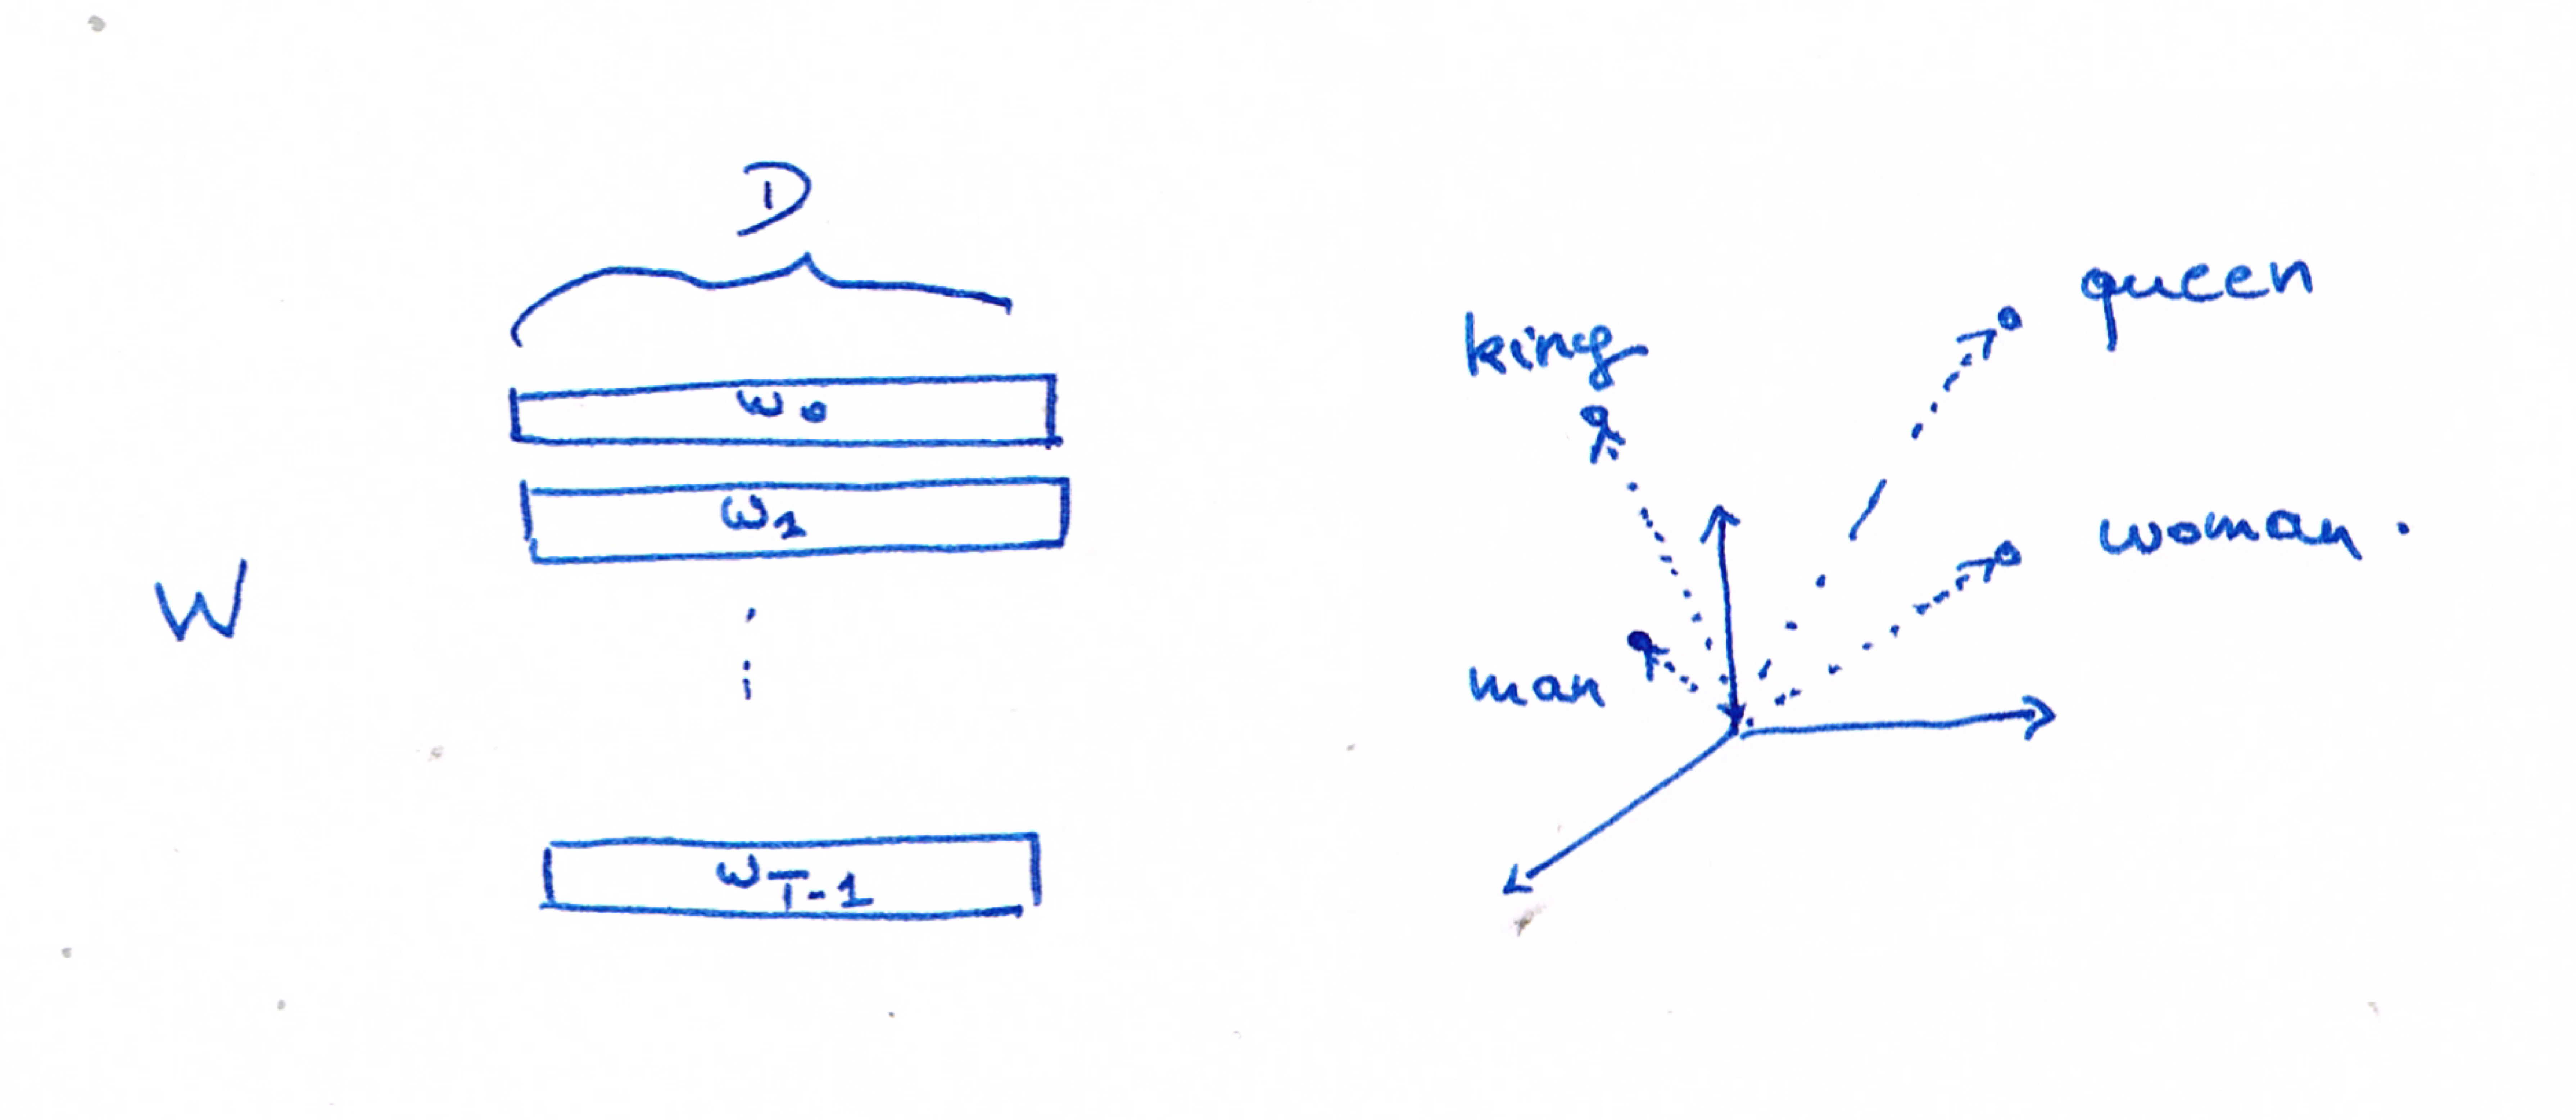 D
w0
w1
W
wT-1
king
queen
man
woman.